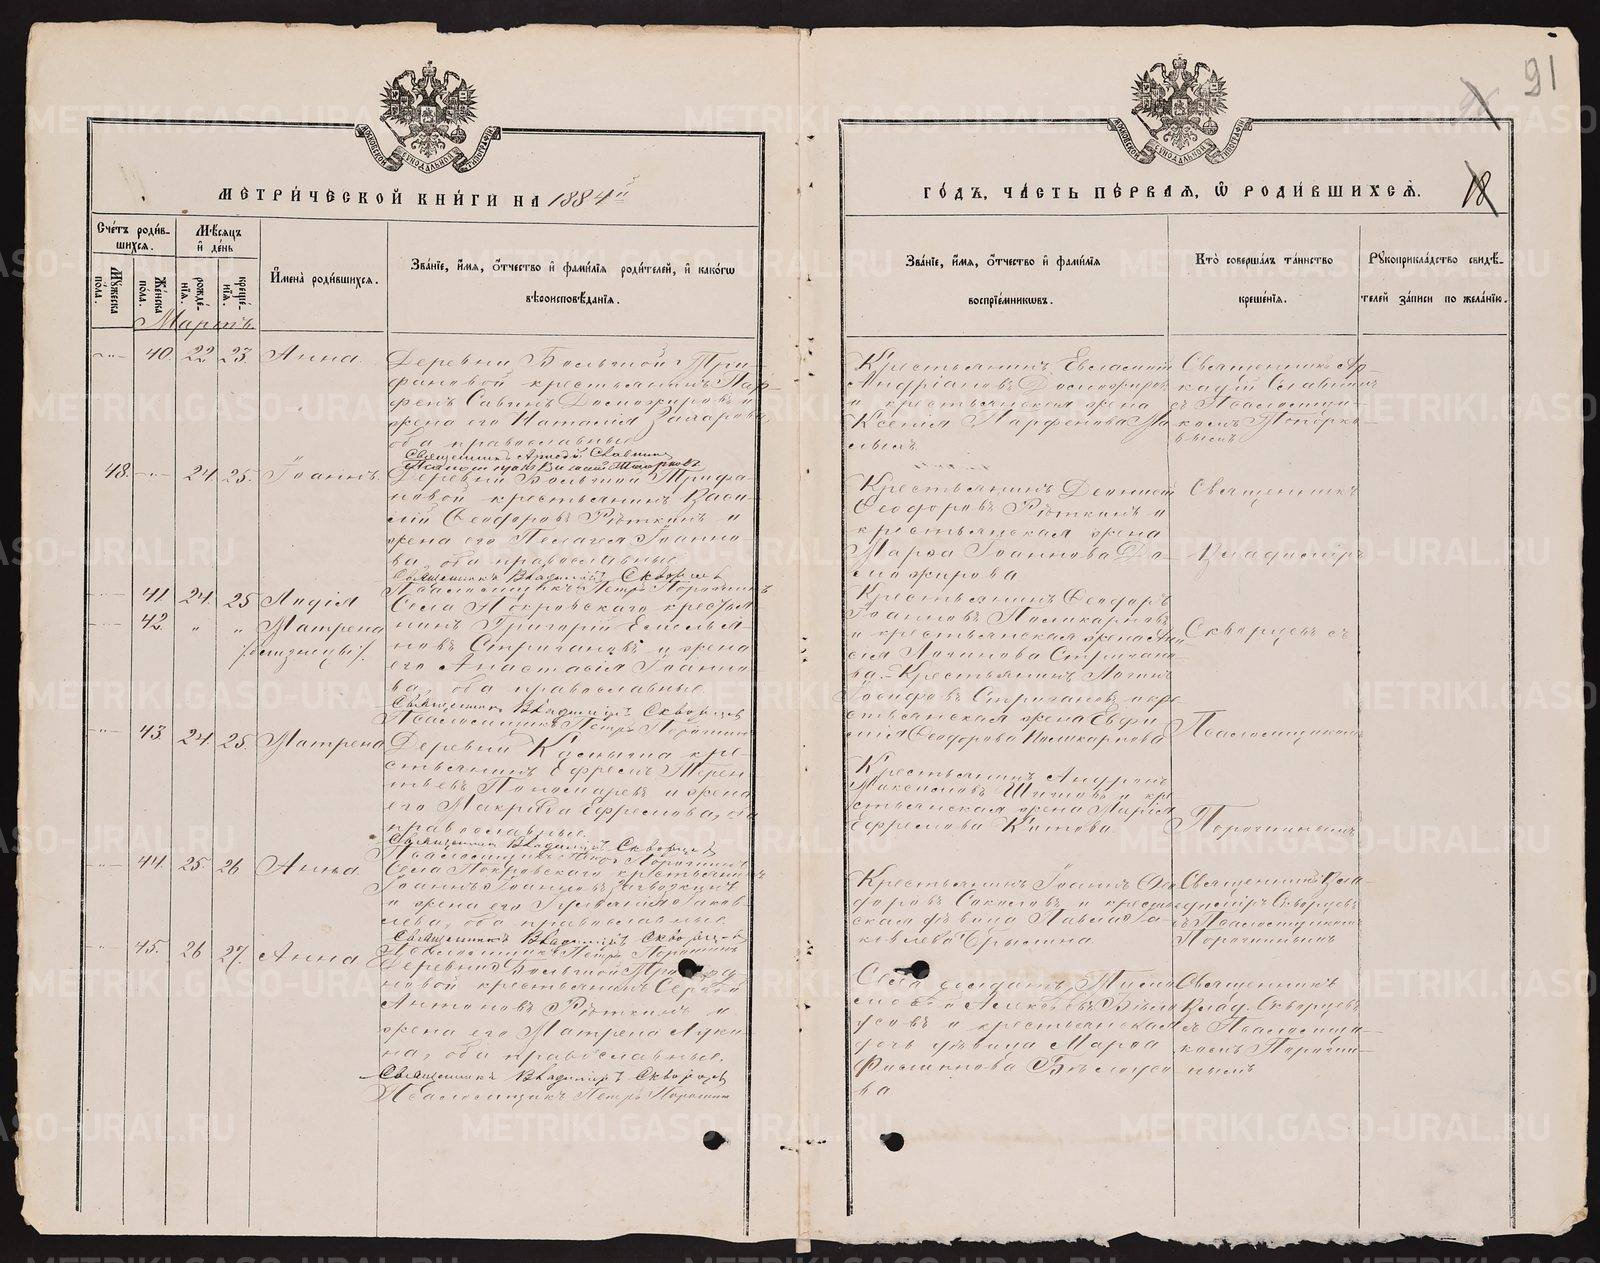 91
18
МЕТРИ́ЧЕСКОЙ КНИ́ГИ НА 1884й
ГО́ДЪ, ЧА́СТЬ ПЕ́РВАЯ, Ѡ РОДИ́ВШИХСѦ.
Сче́тъ роди́в-
шихся.
Мѣ́сяцъ
и҆ де́нь
Мꙋ́жеска
по́ла.
Же́нска
по́ла.
рожде́-
нїя.
креще́-
нїя.
И҆мена̀ роди́вшихся.
Зва́нїе, и҆́мя, ѻ҆́тчество и҆ фами́лїя роди́телей, и҆ како́гѡ
вѣроисповѣ́данїя.
Зва́нїе, и҆́мя, ѻ҆́тчество и҆ фами́лїя
воспрїе́мникѡвъ.
Кто̀ соверша́лъ та́инство
креще́нїя.
Рꙋкоприкла́дство свидѣ́-
телей за́писи по жела́нїю.
Мартъ
40. 22 23. Анна.
Деревни Большой Три-
фановой крестьянинъ Пар-
фенъ Савинъ Доможировъ и
жена его Наталія Захарова
оба православные
Священникъ Аркадій Славнинъ
Крестьянинъ Евлампій
Андріановъ Доможировъ
и крестьянская жена
Ксенія Парфенова Ма
лыхъ
Священникъ Ар-
кадій Славнинъ
съ Псаломщи-
комъ Топорко-
вымъ
48. 24. 25. Іоаннъ.
Деревни Большой Трифа-
новой крестьянинъ Васи-
лій Ѳеодоровъ Рѣткинъ и
жена его Пелагея Іоанно-
ва, оба православные
Священникъ Владиміръ Скворцевъ
Псаломщикъ Петръ Порошинъ
Крестьянинъ Діонисій
Ѳеодоровъ Рѣткинъ и
крестьянская жена
Марѳа Іоаннова До-
можирова
Священникъ
Владиміръ
41. 24. 25 Лидія
42. " " Матрена
/близнецы/.
Села Покровскаго крестья
нинъ Григорій Емелья-
новъ Стриганцевъ и жена
его Анастасія Іоанно-
ва, оба православные.
Священникъ Владиміръ Скворцевъ
Псаломщикъ Петръ Порошинъ
Крестьянинъ Ѳеодоръ
Іоанновъ Поликарповъ
и крестьянская жена
Логинова Стригано-
ва. Крестьянинъ Логинъ
Іосифовъ
стьянская жена Евфи
мія Ѳеодорова Поликарпова
Скворцевъ съ
Псаломщикомъ
43. 24. 25. Матрена
Деревни
стьянинъ Ефремъ Терен-
тьевъ Пономаревъ и жена
его Макрина Ефремова, оба
православные.
Священникъ Владиміръ Скворцевъ
Псаломщикъ Петръ Порошинъ
Крестьянинъ Андронъ
Максимовъ и кре
стьянская жена Марія
Ефремова Китова
Порошинымъ
44. 25. 26 Анна
Села Покровскаго крестьянинъ
Іоаннъ Іоанновъ
и жена его Іаков-
лева, оба православные
Священникъ Владиміръ Скворцевъ
Псаломщикъ Петръ Порошинъ
Крестьянинъ Іоаннъ Ѳео
доровъ Соколовъ и кресть
ская дѣвица Павла Іа-
ковлева Брылина
Священникъ Вла-
диміръ Скворцевъ
съ Псаломщикомъ
Порошинымъ
45. 26 27. Анна
Деревни Большой Трифа
новой крестьянинъ Сергѣй
Антоновъ Рѣткинъ и
жена его Матрена Луки-
на, оба православные.
Священникъ Владиміръ Скворцевъ
Псаломщикъ Петръ Порошинъ
Села солдатъ
Алексѣевъ Бѣло
усовъ и крестьянская
дочь дѣвица Марѳа
Филиппова Бѣлоусо
ва
Священникъ
Влад. Скворцевъ
съ Псаломщи-
комъ Пороши-
нымъ
METRIKI.GASO-URAL.RU